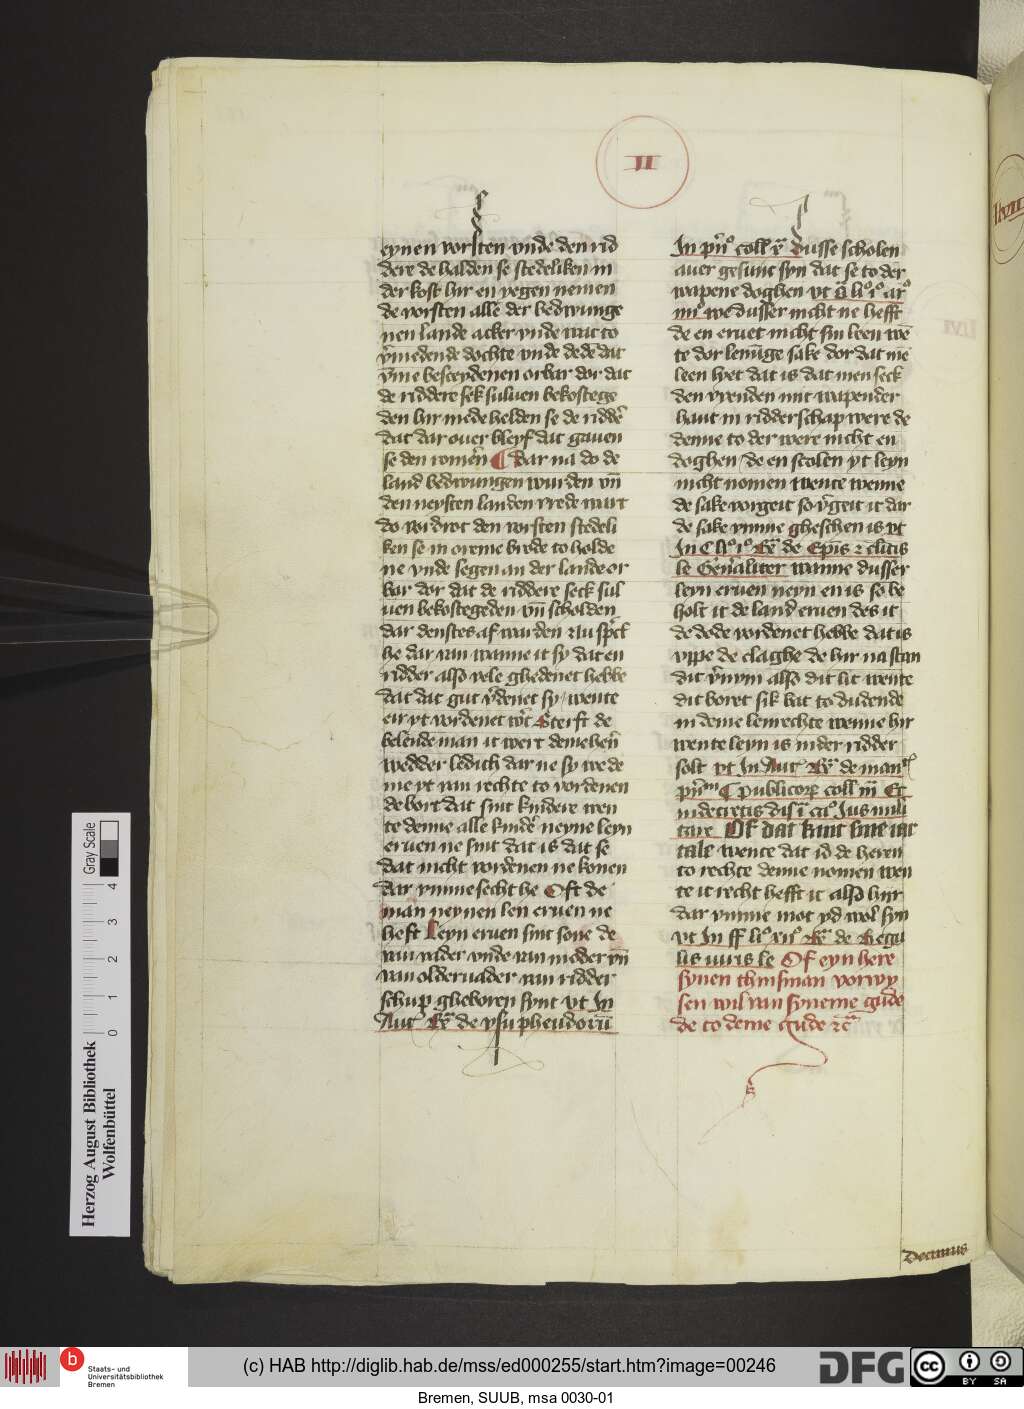 II
eynen vorsten vnde den rid
dere de halden se stedeliken in
der kost hir en yegen nemen
de vorsten alle der bedwunge
nen lande acker vnde wat to
v̄miedende dochte vnde dede dat
v̄me besceydenen orbar dor dat
de riddere sek suluen bekostege
den hir mede helden se de ridder̄
dat dar ouer bleyf dat gauen
se den romer̄n ¶ Dar na do de
land bedwungen wurden vn̄
den neysten landen vrede wart
do vordrot den vorsten stedeli
ken se in oreme brode to holde
ne vnde segen an der lande or
bar dor dat de riddere seck sul
uen bekostegeden vn̄ scholden
dar denstes af warden
he dar van wanne it sy dat en
ridder also vele ghedenet hebbe
dat dat gut v̄denet sy / wente
er yt vordenet Sterft de
belende man it wert deme her̄n
wedder ledich dar ne sy we de
me yt van rechte to vordenen
de bort dat sint kindere wen
te denne alle kinder̄ neyne leyn
eruen ne sint dat is dat se
dat nicht vordenen ne konen
dar vmme secht he Oft de
man neynen len eruen ne
heft Leyn eruen sint sone de
van vader vnde van moder vn̄
van oldervader van ridder
schup gheboren synt vt In
Aut de vsu pheudorū
In coll Dusse scholen
auer gesunt syn dat se to der
wapene doghen vt
we dusser nicht ne hefft
de en eruet nicht sin leen we
te dor lennige sake dor dat me
leen lyet dat is dat men seck
den vrenden mit wapender
hant in ridderschap were de
denne to der were nicht en
doghen / de en scolen yt leyn
nicht nomen wente wenne
de sake vorgeit so v̄geit it dar
de sake vmme gheschen is vt
In de Ep̄is clīcis
le Generaliter wanne dusser
leyn eruen neyn en is so be
holt it de land eruen des it
de dode vordenet hebbe dat is
vppe de claghe de hir na stan
dit v̄nym also dit lit wente
dit boret sik bat to dudende
in deme lenrechte wenne hir
wente leyn is in der ridder
solt vt In Aut de man
publicorum coll
in decretis Jus mili
tare Of dat kint sine iar
tale wente dat id de heren
to rechte denne nomen wen
te it recht hefft it also hir
dar vmme mot yd wol syn
vt In ff de Regu
lis iuris le Of eyn here
synen thinsman vorwy
sen wil van syneme gude
de to deme gude
Decimus
LXVII
Herzog August Bibliothek
Wolfenbüttel
0 1 2 3 4
Gray Scale
b
Staats- und
Universitätsbibliothek
Bremen
(c) HAB http://diglib.hab.de/mss/ed000255/start.htm?image=00246
DFG
cc
BY SA
Bremen, SUUB, msa 0030-01